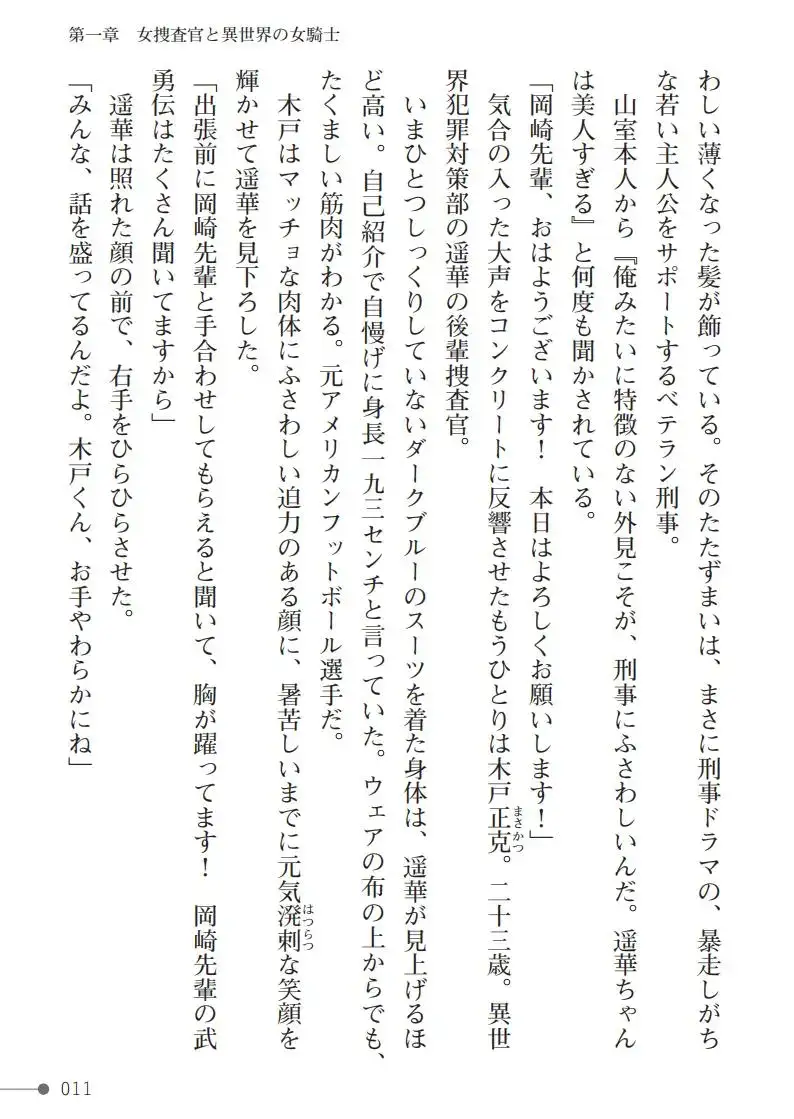 第一章　女捜査官と異世界の女騎士
わしい薄くなった髪が飾っている。そのたたずまいは、まさに刑事ドラマの、暴走しがち
な若い主人公をサポートするベテラン刑事。
　山室本人から『俺みたいに特徴のない外見こそが、刑事にふさわしいんだ。遥華ちゃん
は美人すぎる』と何度も聞かされている。
「岡崎先輩、おはようございます！　本日はよろしくお願いします！」
　気合の入った大声をコンクリートに反響させたもうひとりは木戸正克。二十三歳。異世
まさかつ
界犯罪対策部の遥華の後輩捜査官。
　いまひとつしっくりしていないダークブルーのスーツを着た身体は、遥華が見上げるほ
ど高い。自己紹介で自慢げに身長一九三センチと言っていた。ウェアの布の上からでも、
たくましい筋肉がわかる。元アメリカンフットボール選手だ。
　木戸はマッチョな肉体にふさわしい迫力のある顔に、暑苦しいまでに元気溌剌な笑顔を
はつらつ
輝かせて遥華を見下ろした。
「出張前に岡崎先輩と手合わせしてもらえると聞いて、胸が躍ってます！　岡崎先輩の武
勇伝はたくさん聞いてますから」
　遥華は照れた顔の前で、右手をひらひらさせた。
「みんな、話を盛ってるんだよ。木戸くん、お手やわらかにね」
011